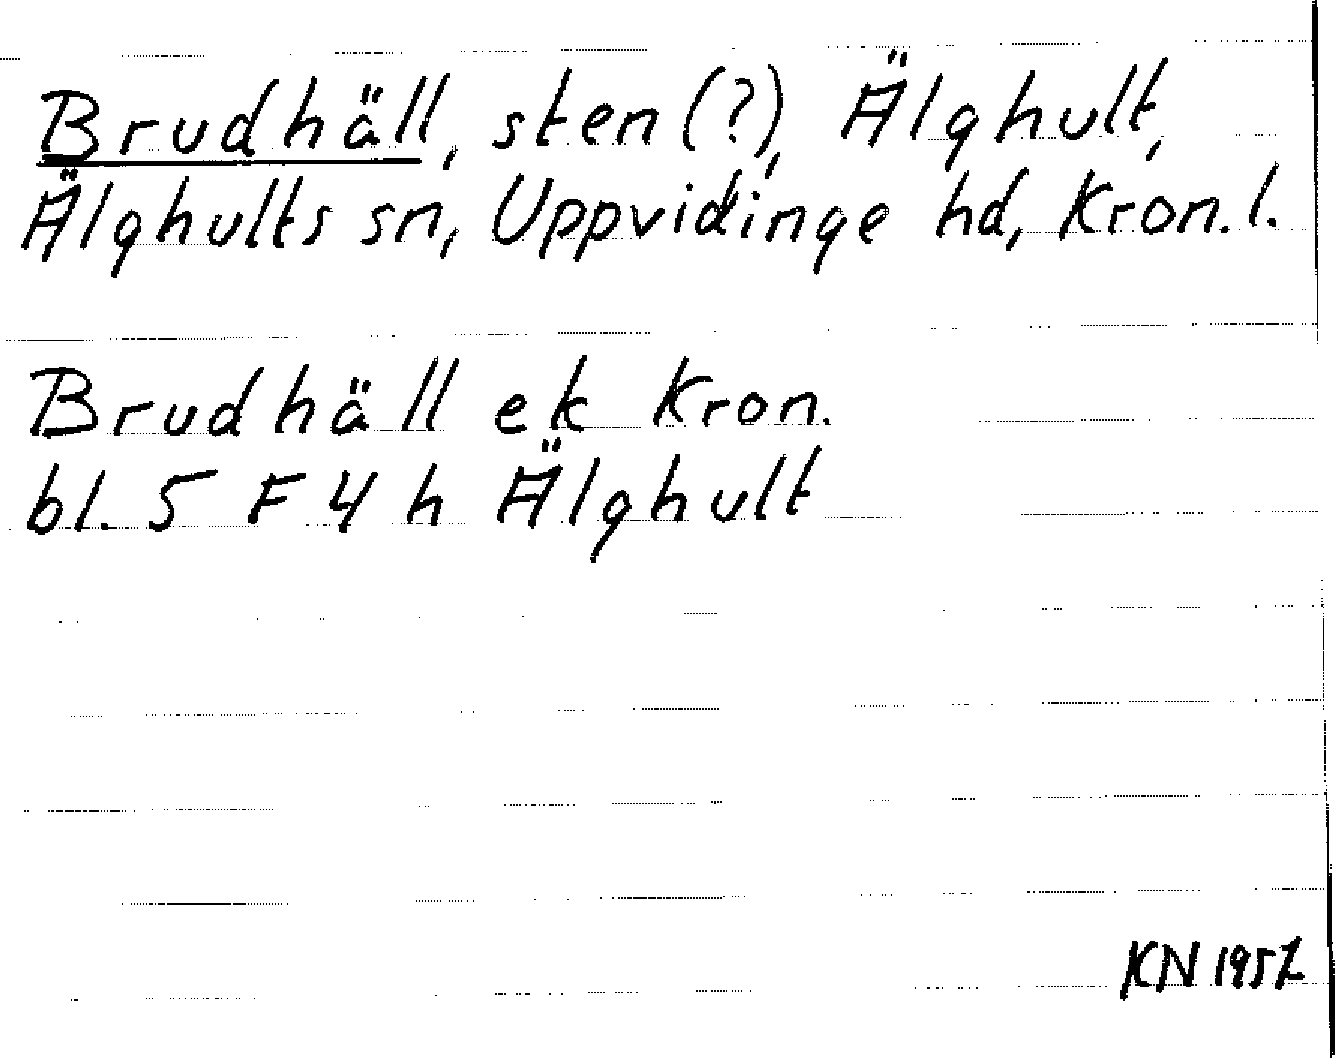 Brudhäll, sten (?), Älghult,
Älghults sn, Uppvidinge hd, Kron. l.
Brudhäll ek Kron.
bl. 5 F 4 h Älghult
KN 1957